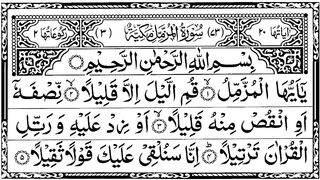 اٰیَاتُهَا ۲۰ (۷۳) سُوْرَةُ الْمُزَّمِّلِ مَكِّيَّةٌ (۳) رُكُوْعَاتُهَا ۲
بِسْمِ اللّٰهِ الرَّحْمٰنِ الرَّحِيْمِ
يٰۤاَيُّهَا الْمُزَّمِّلُ ۝۱ قُمِ الَّيْلَ اِلَّا قَلِيْلًا ۝۲ نِّصْفَهٗۤ
اَوِ انْقُصْ مِنْهُ قَلِيْلًا ۝۳ اَوْ زِدْ عَلَيْهِ وَ رَتِّلِ
الْقُرْاٰنَ تَرْتِيْلًا ۝۴ اِنَّا سَنُلْقِيْ عَلَيْكَ قَوْلًا ثَقِيْلًا ۝۵